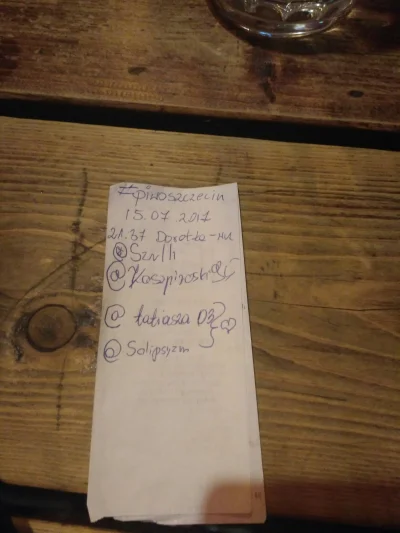 #piwoszczecin
15.07.2017
21.37 Dorotka-HU
@Szn/h
@Kaszpirovski
@tatiasza 03
@Solipsyzm